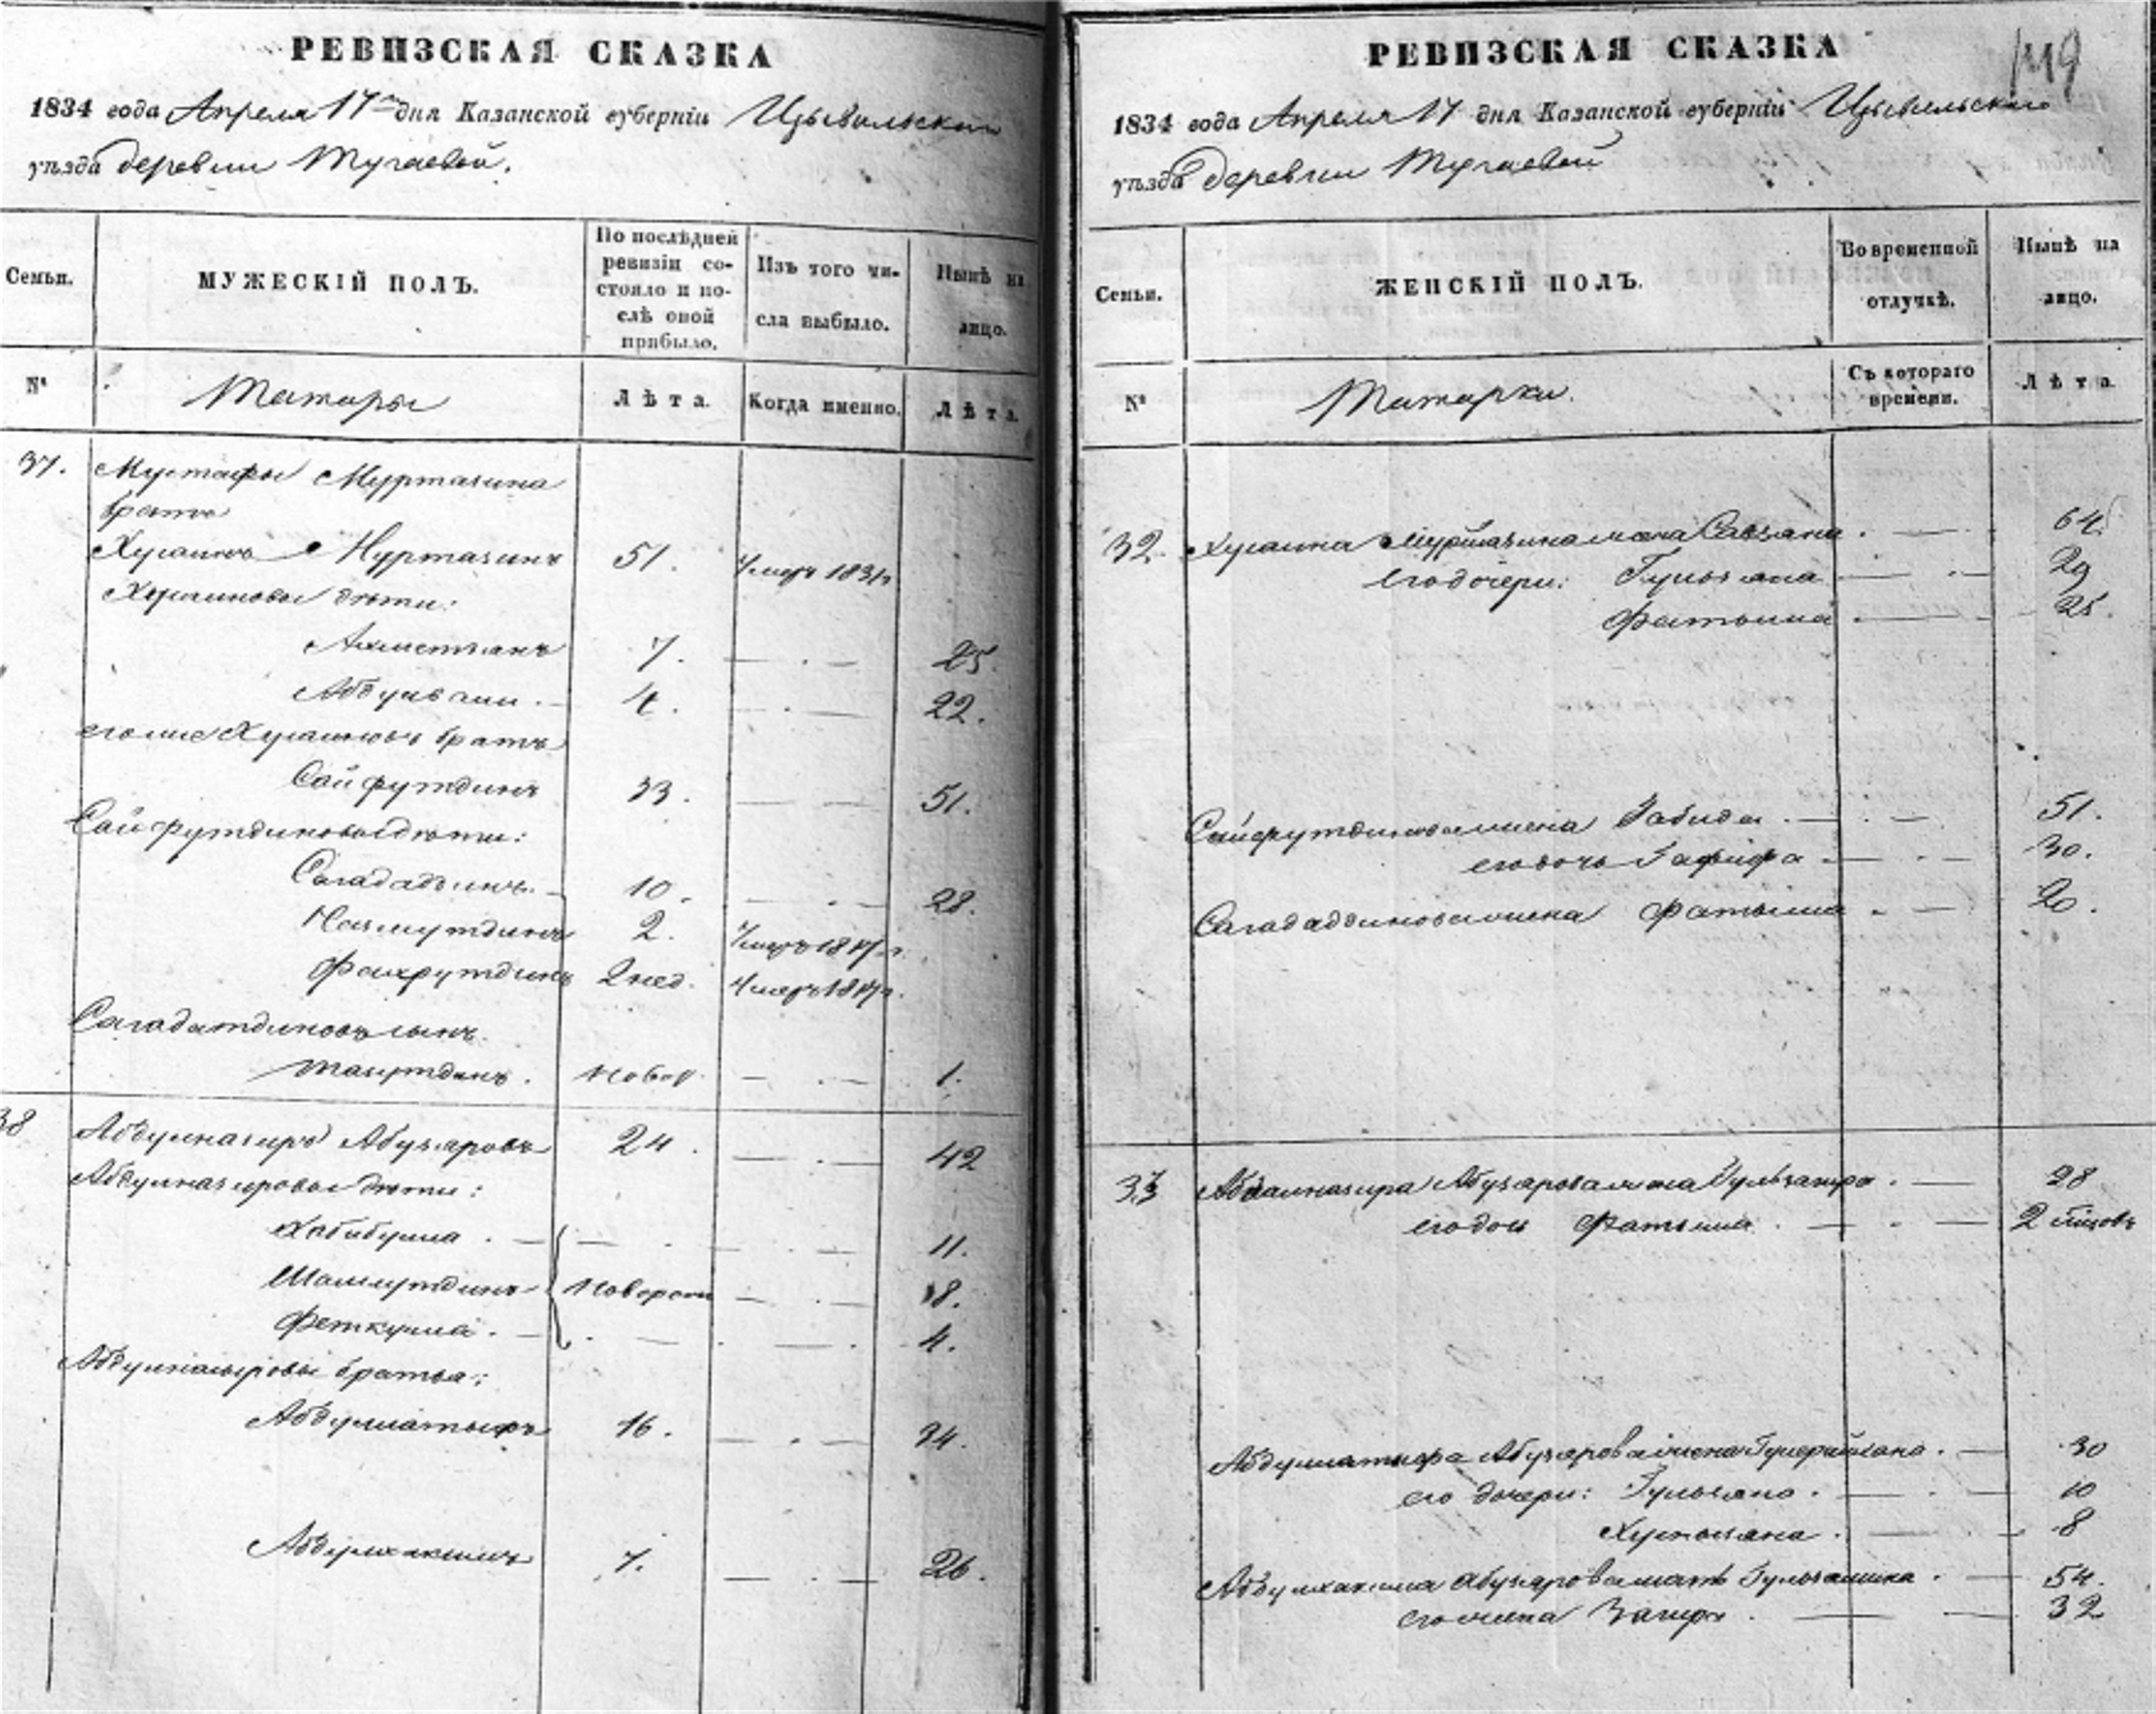 РЕВИЗСКАЯ СКАЗКА
1834 года Апреля 17 дня Казанской губерніи Цывильскаго
уѣзда деревни Тугаевой.
Семьи.
МУЖЕСКІЙ ПОЛЪ.
По послѣдней
ревизіи со-
стояло и по-
слѣ оной
прибыло.
Изъ того чи-
сла выбыло.
Нынѣ на
лицо.
№
Татары
Лѣта.
Когда именно.
Лѣта.
37. Мустафы Муртазина
братъ
Хусаинъ Муртазинъ 51. умеръ 1831г
Хусаиновы дѣти:
Ахметзянъ 7. 25.
Абдулвали 4. 22.
его же Хусаиновъ братъ
Сайфутдинъ 33. 51.
Сайфутдиновы дѣти:
Сагададдинъ 10. 28.
Назмутдинъ 2. умеръ 18 г.
Фахрутдинъ 2 нед. умеръ 18 г.
Сагадатдиновъ сынъ
новор. 1.
38 Абдулназыръ Абузяровъ 24. 42
Абдулназыровы дѣти:
Хабибулла 11.
Шамсутдинъ новорож 8.
Феткулла 4.
Абдулназыровы братья:
Абдуллатыфъ 16. 34.
Абдулхакимъ 7. 26.
РЕВИЗСКАЯ СКАЗКА
1834 года Апреля 17 дня Казанской губерніи Цывильскаго
уѣзда деревни Тугаевой
Семьи.
ЖЕНСКІЙ ПОЛЪ.
Во временной
отлучкѣ.
Нынѣ на
лицо.
№
Татарки.
Съ котораго
времени.
Лѣта.
32. Хусаина Муртазина жена 64.
его дочери: Гульзяна 29
Фатыма 25.
Сайфутдинова жена Забида 51.
его дочь Зафифа 30.
Сагададдинова жена Фатыма 20.
33 Абдулназыра Абузярова жена 28
его дочь Фатыма 2 мѣсяцовъ
Абдуллатыфа Абузярова жена 30
его дочери: Гульзяна 10
8
Абдулхакима Абузярова мать 54.
его жена Загира 32